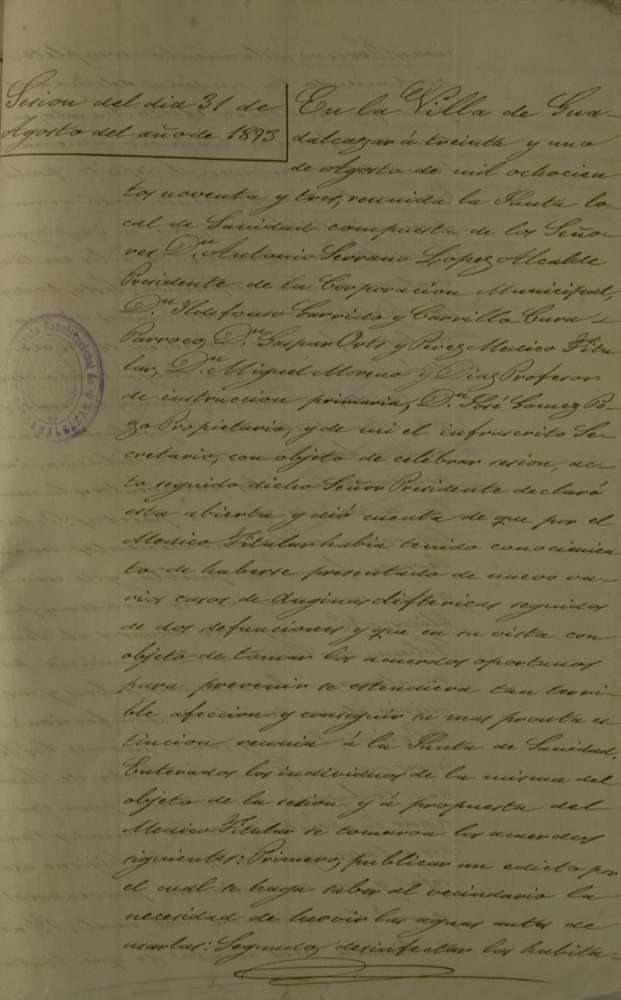 Sesion del dia 31 de
Agosto del año de 1893
En la Villa de Gua-
dalcazar á treinta y uno
de Agosto de mil ochocien
tos noventa y tres, reunida la Junta lo-
cal de Sanidad compuesta de los Seño-
res Dn. Antonio Serrano Lopez Alcalde
Presidente de la Corporacion Municipal,
Dn. Ildefonso Garrido y Carrillo Cura
Parroco, Dn. Gaspar Ortiz y Perez Medico Titu
lar, Dn. Miguel Moreno y Diaz Profesor
de instruccion primaria, Dn. José Gomez Po-
zo Propietario, y de mi el infrascrito Se-
cretario, con objeto de celebrar sesion, ac-
to seguido dicho Señor Presidente declaró
esta abierta y dió cuenta de que por el
Medico Titular habia tenido conocimien
to de haberse presentado de nuevo va-
rios casos de Anginas diftericas seguidos
de dos defunciones y que en su vista con
objeto de tomar los acuerdos oportunos
para prevenir se estendiera tan terri-
ble afeccion y conseguir su mas pronta es
tincion reunia á la Junta de Sanidad.
Enterados los individuos de la misma del
objeto de la sesion y á propuesta del
Medico Titular se tomaron los acuerdos
siguientes: Primero, publicar un edicto por
el cual se haga saber al vecindario la
necesidad de hervir las aguas antes de
usarlas: Segundo, desinfectar las habita-